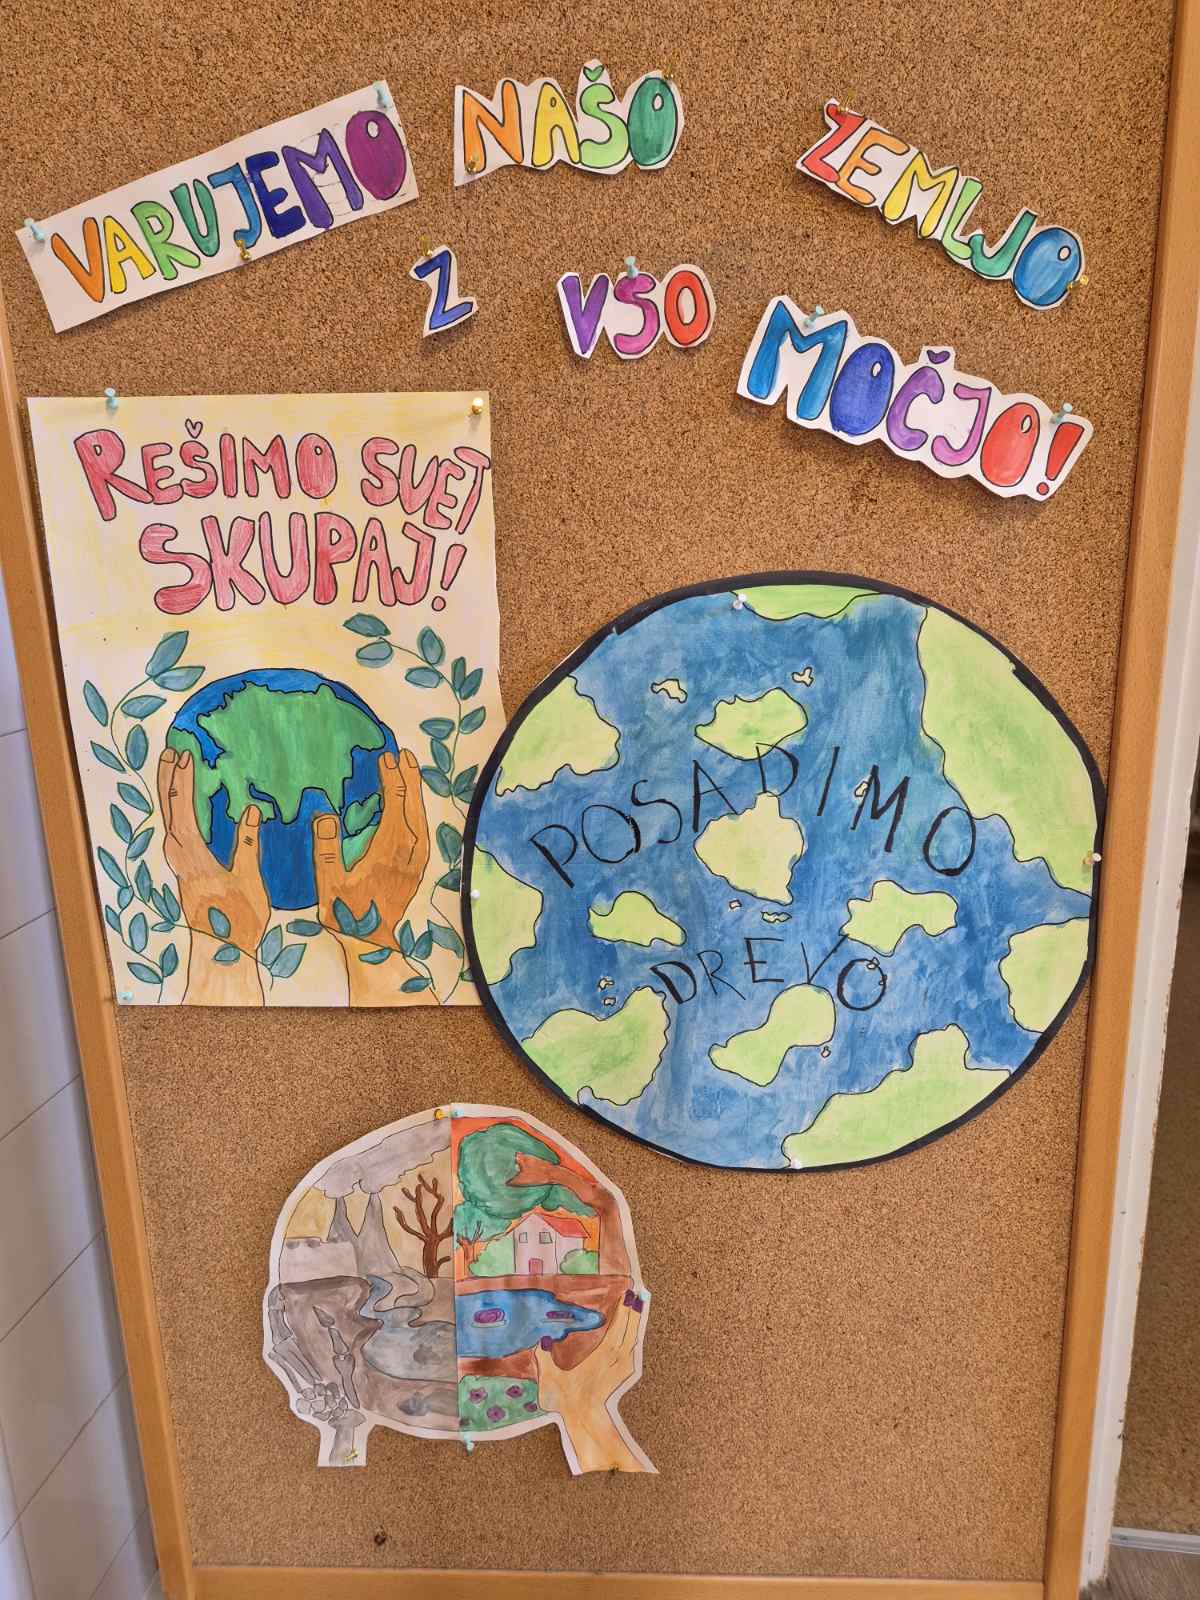 VARUJEMO NAŠO ZEMLJO
Z VSO MOČJO!
REŠIMO SVET
SKUPAJ!
POSADIMO
DREVO